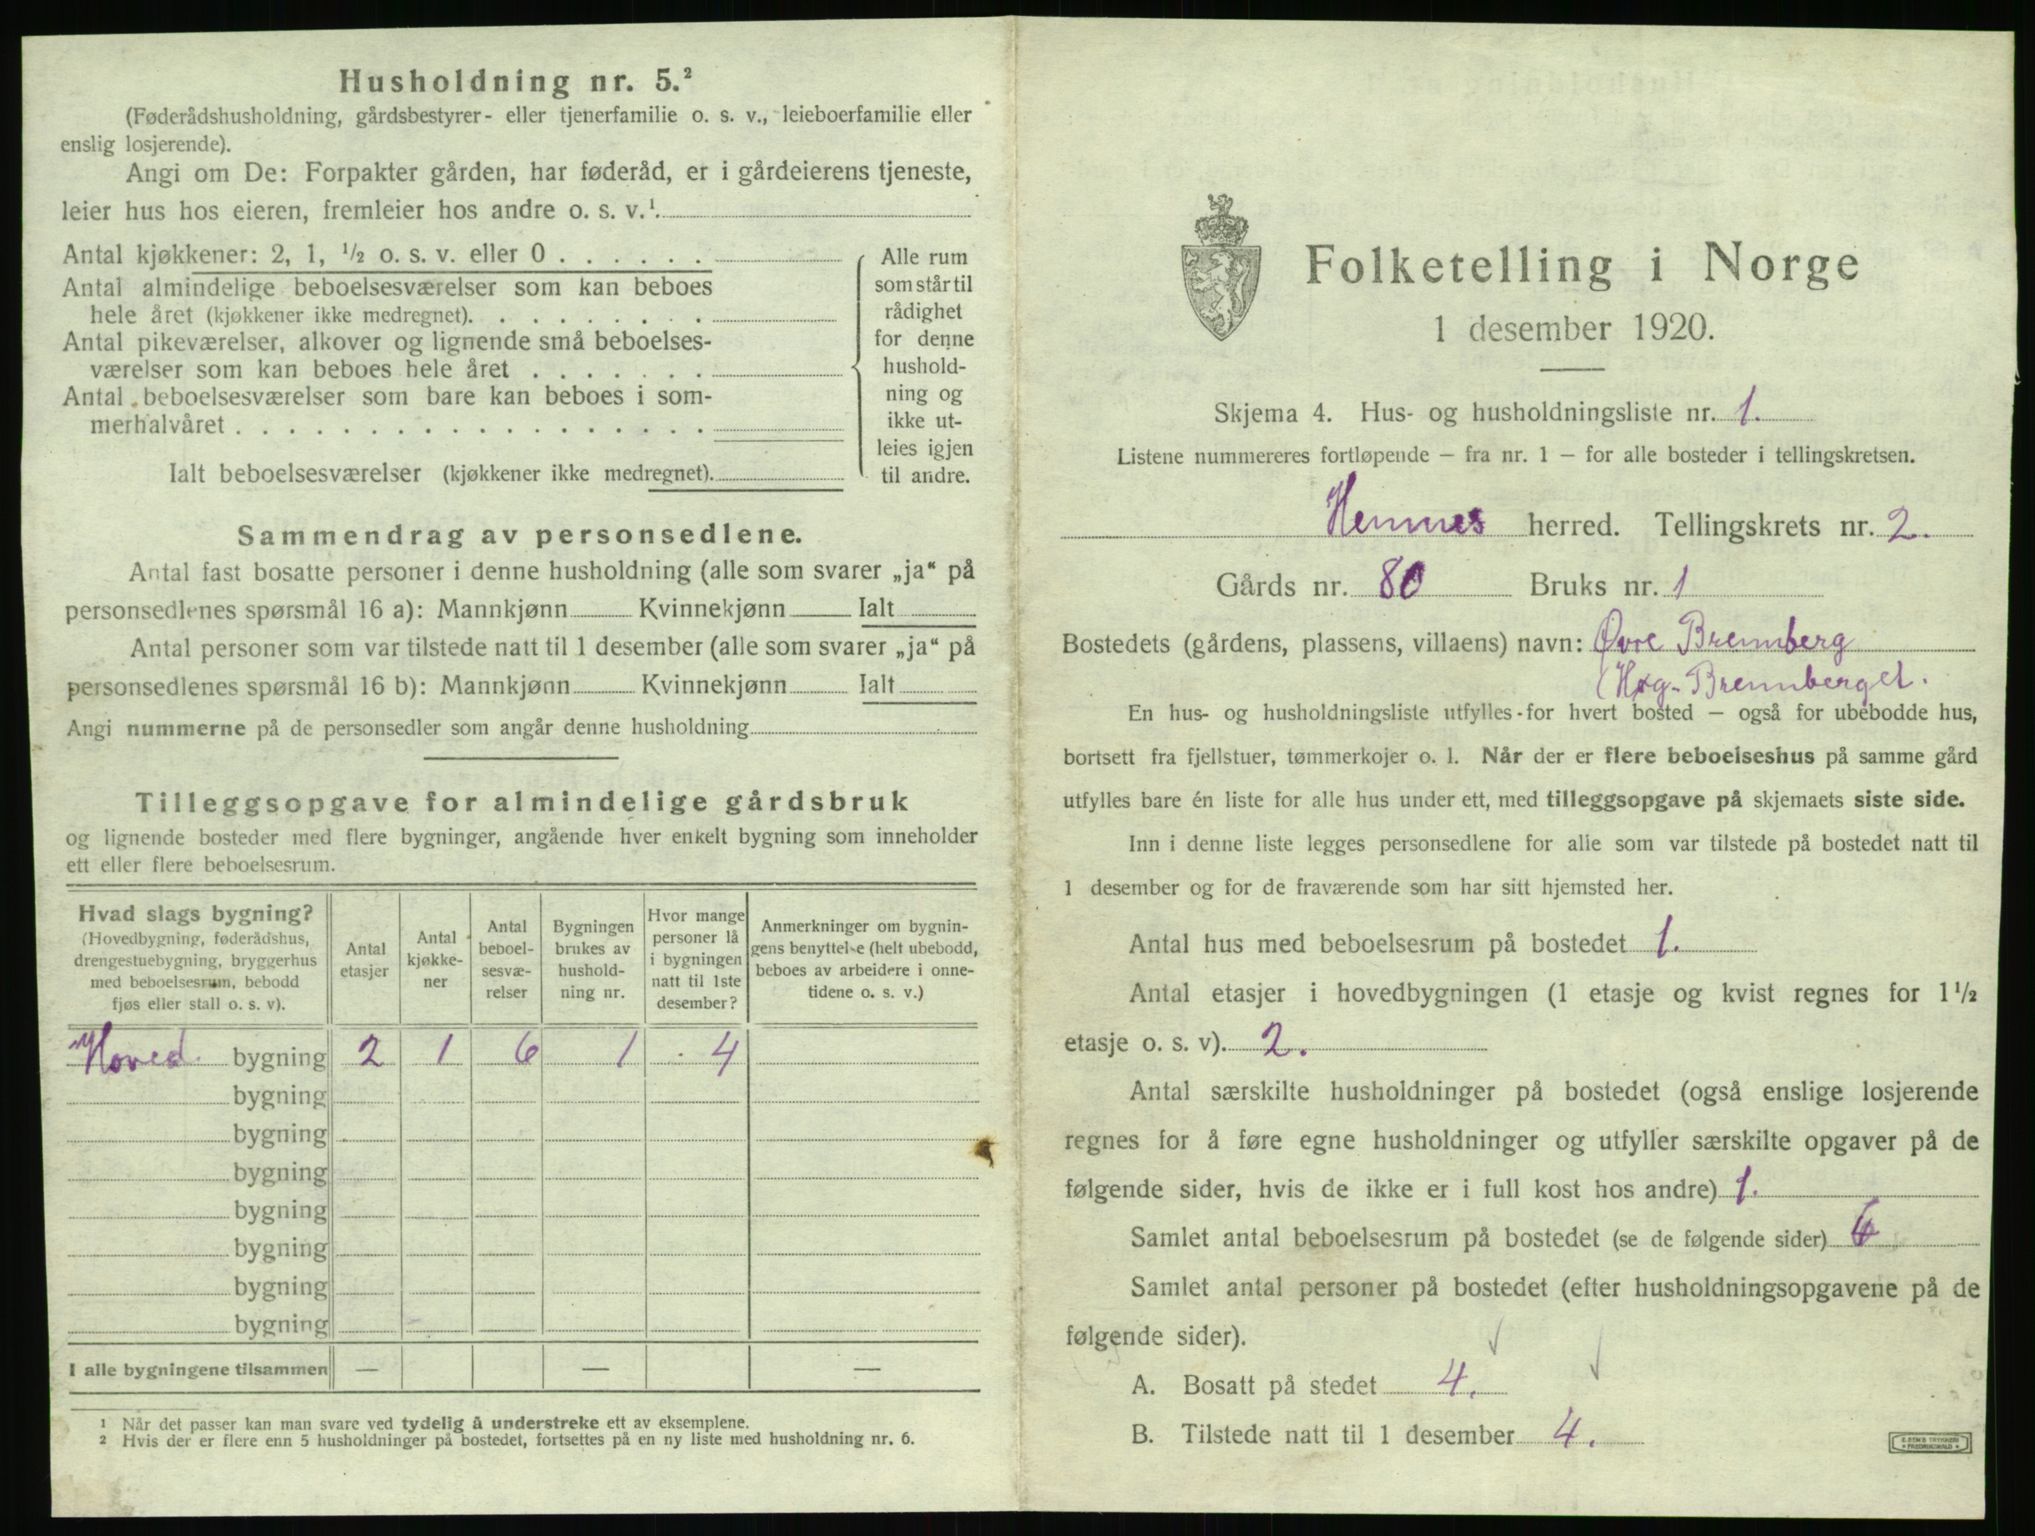 Husholdning nr. 5.²
(Føderådshusholdning, gårdsbestyrer- eller tjenerfamilie o. s. v., leieboerfamilie eller
enslig losjerende).
Angi om De: Forpakter gården, har føderåd, er i gårdeierens tjeneste,
leier hus hos eieren, fremleier hos andre o. s. v.¹.
Antal kjøkkener: 2, 1, ½ o. s. v. eller 0 . . . . . .
Antal almindelige beboelsesværelser som kan beboes
hele året (kjøkkener ikke medregnet). . . . . . . . .
Antal pikeværelser, alkover og lignende små beboelses-
værelser som kan beboes hele året . . . . . . .
Antal beboelsesværelser som bare kan beboes i som-
merhalvåret . . . . . . . . . . . . . . . . . .
Ialt beboelsesværelser (kjøkkener ikke medregnet).
Alle rum
som står til
rådighet
for denne
hushold-
ning og
ikke ut-
leies igjen
til andre.
Sammendrag av personsedlene.
Antal fast bosatte personer i denne husholdning (alle som svarer „ja“ på
personsedlenes spørsmål 16 a): Mannkjønn Kvinnekjønn Ialt
Antal personer som var tilstede natt til 1 desember (alle som svarer „ja“ på
personsedlenes spørsmål 16 b): Mannkjønn Kvinnekjønn Ialt
Angi nummerne på de personsedler som angår denne husholdning
Tilleggsopgave for almindelige gårdsbruk
og lignende bosteder med flere bygninger, angående hver enkelt bygning som inneholder
ett eller flere beboelsesrum.
Hvad slags bygning?
(Hovedbygning, føderådshus,
drengestuebygning, bryggerhus
med beboelsesrum, bebodd
fjøs eller stall o. s. v).
Antal
etasjer
Antal
kjøkke-
ner
Antal
beboel-
sesvæ-
relser
Bygningen
brukes av
hushold-
ning nr.
Hvor mange
personer lå
i bygningen
natt til 1ste
desember?
Anmerkninger om bygnin-
gens benyttelse (helt ubebodd,
beboes av arbeidere i onne-
tidene o. s. v.)
Hoved. bygning 2 1 6 1 4
bygning
bygning
bygning
bygning
bygning
bygning
bygning
I alle bygningene tilsammen — — —
¹ Når det passer kan man svare ved tydelig å understreke ett av eksemplene.
² Hvis der er flere enn 5 husholdninger på bostedet, fortsettes på en ny liste med husholdning nr. 6.
Folketelling i Norge
1 desember 1920.
Skjema 4. Hus- og husholdningsliste nr. 1.
Listene nummereres fortløpende – fra nr. 1 – for alle bosteder i tellingskretsen.
Hemnes herred. Tellingskrets nr. 2.
Gårds nr. 80 Bruks nr. 1
Bostedets (gårdens, plassens, villaens) navn: Øvre Brennberg
(Høg-Brennberget.
En hus- og husholdningsliste utfylles for hvert bosted – også for ubebodde hus,
bortsett fra fjellstuer, tømmerkojer o. l. Når der er flere beboelseshus på samme gård
utfylles bare én liste for alle hus under ett, med tilleggsopgave på skjemaets siste side.
Inn i denne liste legges personsedlene for alle som var tilstede på bostedet natt til
1 desember og for de fraværende som har sitt hjemsted her.
Antal hus med beboelsesrum på bostedet 1.
Antal etasjer i hovedbygningen (1 etasje og kvist regnes for 1½
etasje o. s. v). 2.
Antal særskilte husholdninger på bostedet (også enslige losjerende
regnes for å føre egne husholdninger og utfyller særskilte opgaver på de
følgende sider, hvis de ikke er i full kost hos andre) 1.
Samlet antal beboelsesrum på bostedet (se de følgende sider) 6
Samlet antal personer på bostedet (efter husholdningsopgavene på de
følgende sider).
A. Bosatt på stedet 4.
B. Tilstede natt til 1 desember 4.